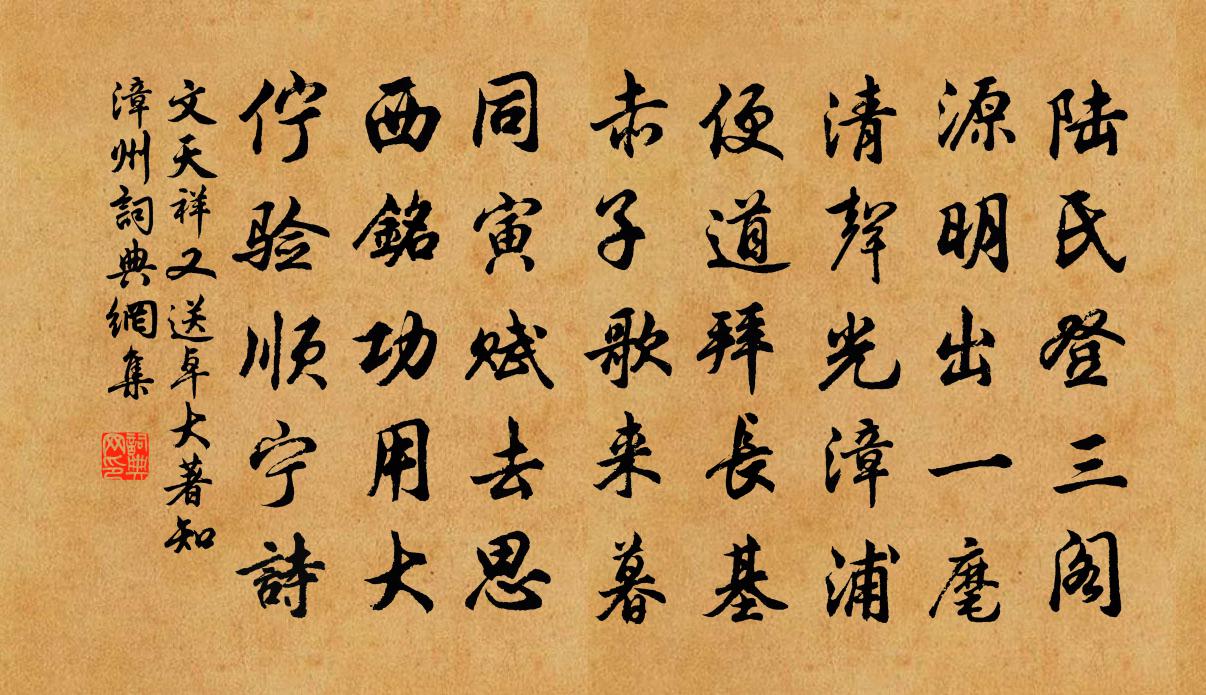 陆氏登三阁
源明出一麾
清聲光漳浦
便道拜長基
赤子歌来暮
同寅赋去思
西銘功用大
佇验顺宁詩
文天祥又送卓大著知
漳州詞典網集
詞典网印